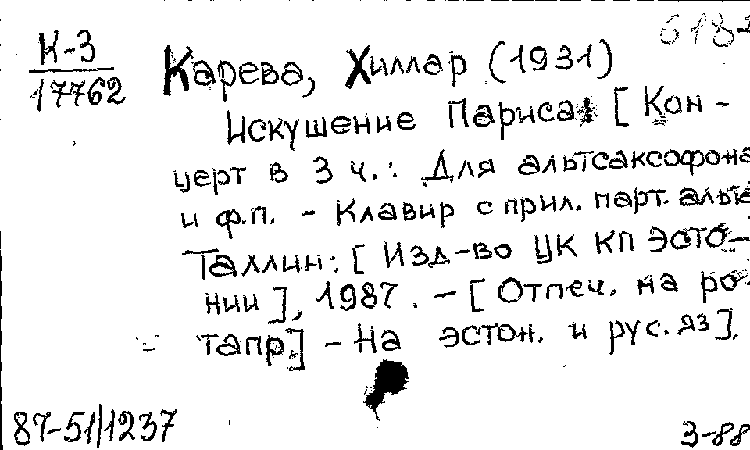 618
К-3
17762
Карева, Хиллар (1931)
Искушение Париса: [Кон-
церт в 3 ч.: Для альтсаксофона
и ф.п. - Клавир с прил. парт. альта
Таллин: [Изд-во ЦК КП Эсто-
нии], 1987. - [Отпеч. на ро-
тапр.] - На эстон. и рус. яз].
87-51/1237
3-88